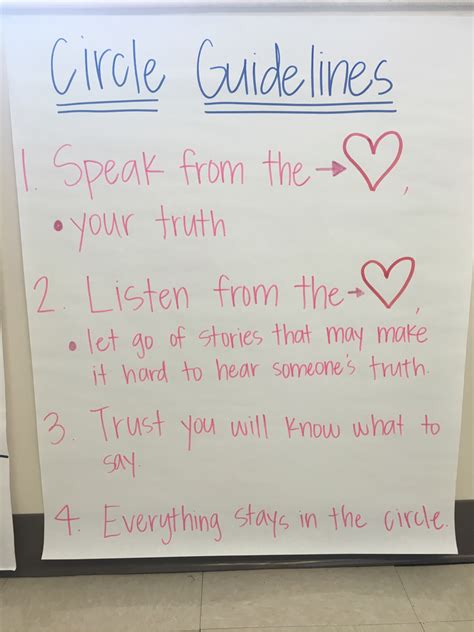 Circle Guidelines
1. Speak from the → ♡,
• your truth
2. Listen from the → ♡,
• let go of stories that may make
it hard to hear someone's truth.
3. Trust you will know what to
say.
4. Everything stays in the circle.